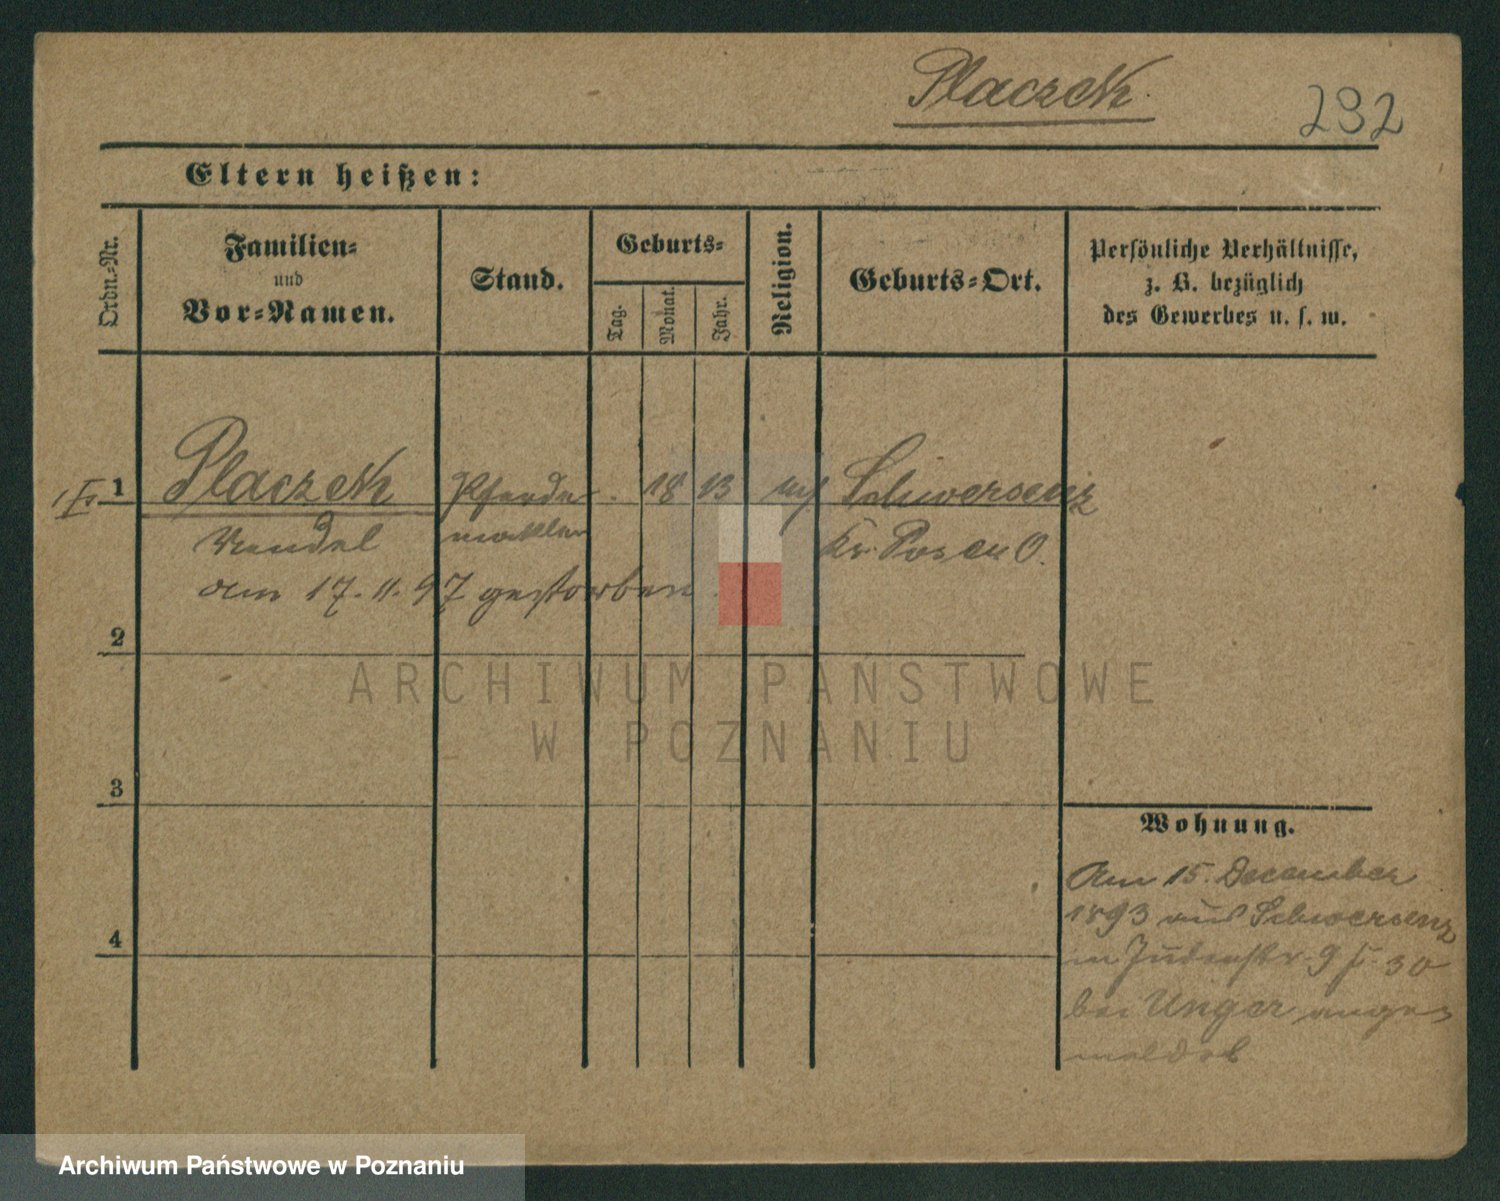 Placzek.
232
Eltern heißen:
Ordn.-Nr.
Familien-
und
Vor-Namen.
Stand.
Geburts-
Tag.
Monat.
Jahr.
Religion.
Geburts-Ort.
Persönliche Verhältnisse,
z. B. bezüglich
des Gewerbes u. s. w.
1 Placzek Pferde 18 13 Schwersenz
Mendel makler Kr. Posen O.
am 17.11.97 gestorben
2
3
4
Wohnung.
Am 15. December
1893 aus Schwersenz
in Judenstr. 9 30
bei Unger ange-
meldet
ARCHIWUM PAŃSTWOWE
W POZNANIU
Archiwum Państwowe w Poznaniu